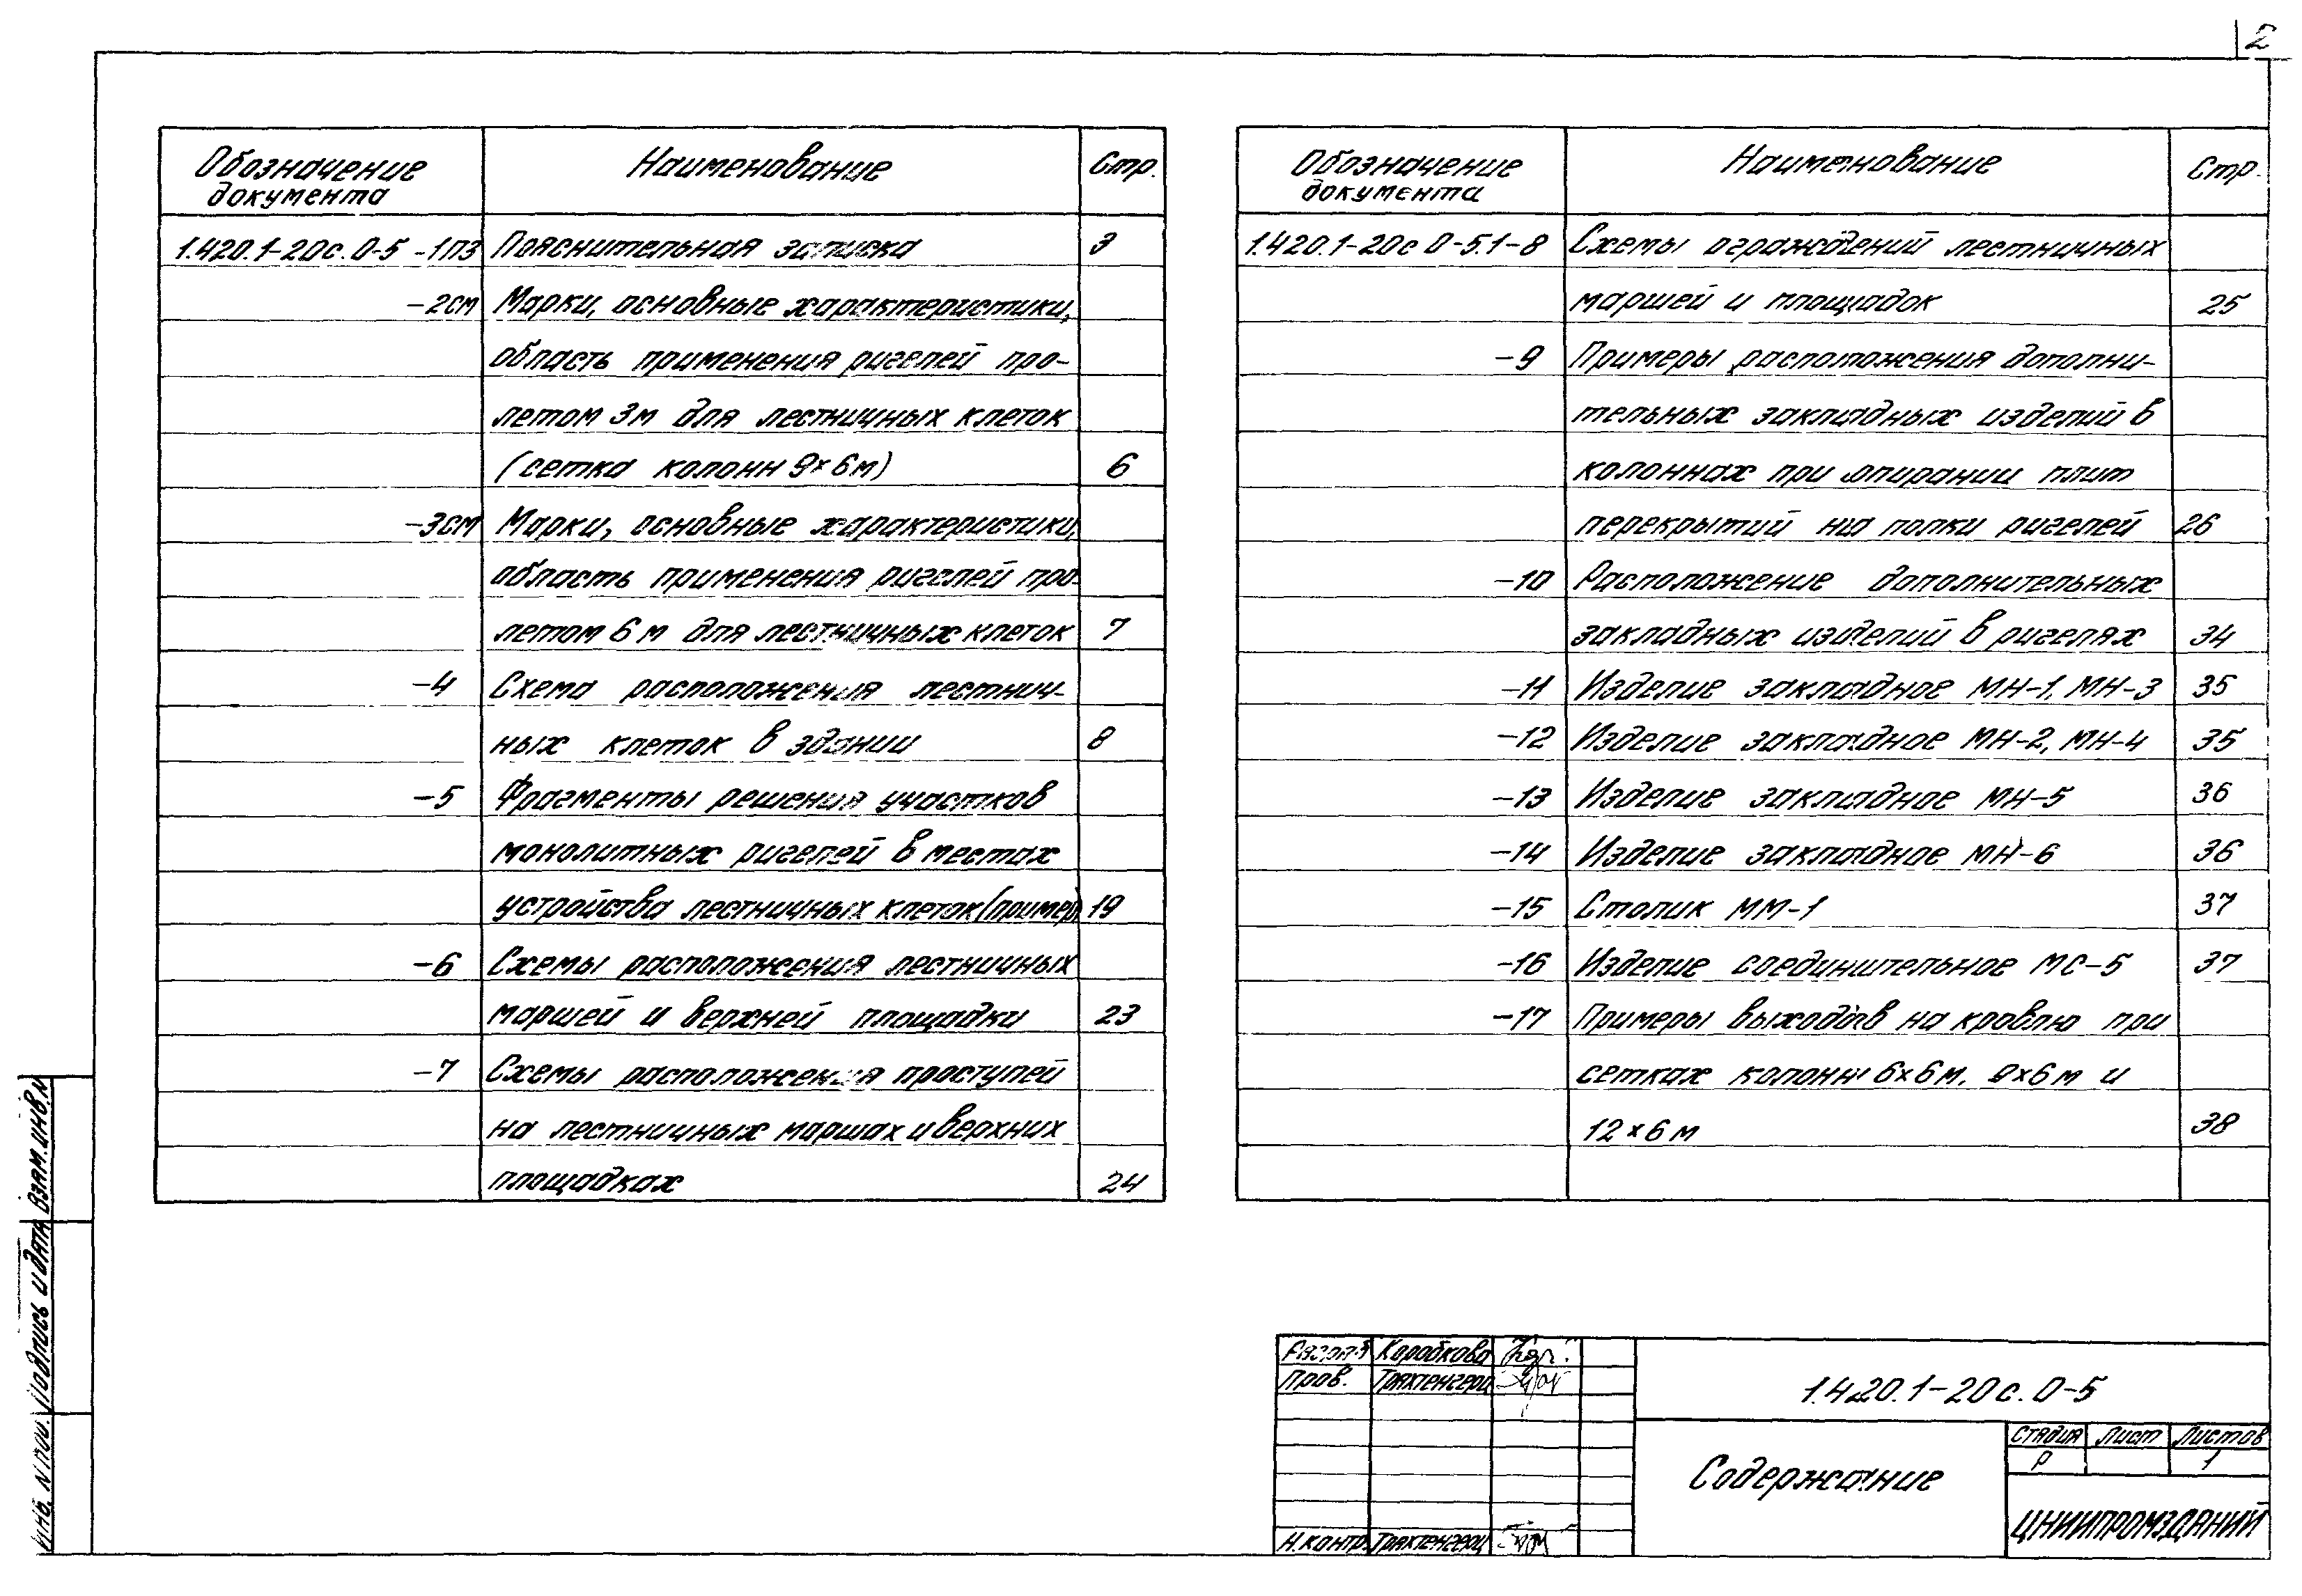 2
Обозначение документа Наименование Стр.
1.420.1-20с.0-5 -1ПЗ Пояснительная записка 3
-2СМ Марки, основные характеристики,
область применения ригелей про-
летом 3м для лестничных клеток
(сетка колонн 9×6м) 6
-3СМ Марки, основные характеристики,
область применения ригелей про-
летом 6м для лестничных клеток 7
-4 Схема расположения лестнич-
ных клеток в здании 8
-5 Фрагменты решения участков
монолитных ригелей в местах
устройства лестничных клеток (пример) 19
-6 Схемы расположения лестничных
маршей и верхней площадки 23
-7 Схемы расположения проступей
на лестничных маршах и верхних
площадках 24
Обозначение документа Наименование Стр.
1.420.1-20с 0-5.1-8 Схемы ограждений лестничных
маршей и площадок 25
-9 Примеры расположения дополни-
тельных закладных изделий в
колоннах при опирании плит
перекрытий на полки ригелей 26
-10 Расположение дополнительных
закладных изделий в ригелях 34
-11 Изделие закладное МН-1, МН-3 35
-12 Изделие закладное МН-2, МН-4 35
-13 Изделие закладное МН-5 36
-14 Изделие закладное МН-6 36
-15 Столик ММ-1 37
-16 Изделие соединительное МС-5 37
-17 Примеры выходов на кровлю при
сетках колонн 6×6м, 9×6м и
12×6м 38
Взам. инв. №
Подпись и дата
Инв. № подл.
Разраб. Коробкова
Пров. Трахтенгерц
Н.контр. Трахтенгерц
1.420.1-20с.0-5
Содержание
Стадия Лист Листов
Р 1
ЦНИИПРОМЗДАНИЙ